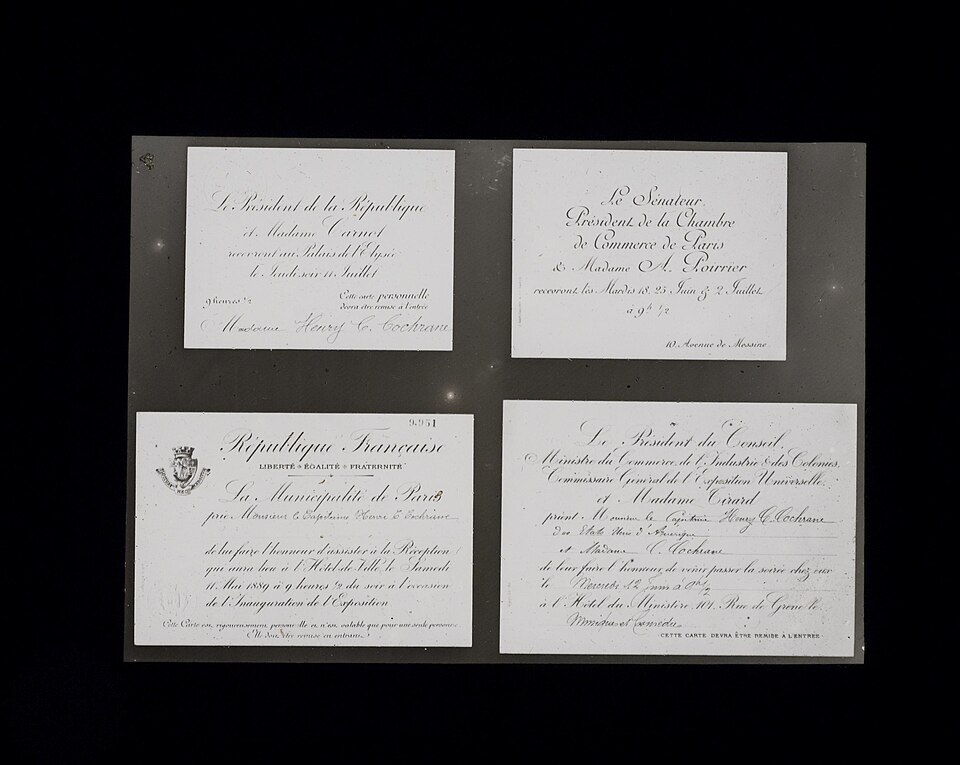 Le Président de la République
et Madame Carnot
recevront au Palais de l'Elysée
le Jeudi soir 11 Juillet
9 heures ½
Cette carte personnelle
devra être remise à l'entrée
Madame Henry C. Cochrane
Le Sénateur,
Président de la Chambre
de Commerce de Paris
& Madame A. Poirrier
recevront les Mardis 18, 25 Juin & 2 Juillet
à 9h ½
10, Avenue de Messine
9.951
République Française
LIBERTÉ ÉGALITÉ FRATERNITÉ
La Municipalité de Paris
prie Monsieur le Capitaine Henri C Cochrane
de lui faire l'honneur d'assister à la Réception
qui aura lieu à l'Hôtel-de-Ville, le Samedi
11 Mai 1889 à 9 heures ½ du soir à l'occasion
de l'Inauguration de l'Exposition
Cette Carte est rigoureusement personnelle et n'est valable que pour une seule personne
Elle doit être remise en entrant
Le Président du Conseil,
Ministre du Commerce, de l'Industrie & des Colonies,
Commissaire Général de l'Exposition Universelle
et Madame Tirard
prient Monsieur le Capitaine Henry C. Cochrane
des Etats Unis d'Amérique
et Madame C. Cochrane
de leur faire l'honneur de venir passer la soirée chez eux
le Mercredi 12 Juin à 9h ½
à l'Hôtel du Ministère, 101, Rue de Grenelle
CETTE CARTE DEVRA ÊTRE REMISE A L'ENTRÉE